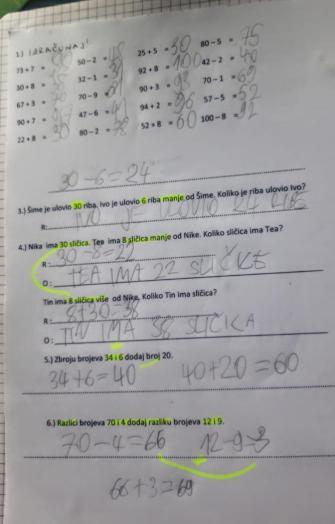 1.) IZRAČUNAJ!
73 + 7 = 50 - 2 = 48 25 + 5 = 30 80 - 5 = 75
30 + 8 = 32 - 1 = 92 + 8 = 100 42 - 2 = 40
67 + 3 = 70 - 9 = 90 + 3 = 93 70 - 1 = 69
90 + 7 = 47 - 6 = 41 94 + 2 = 96 57 - 5 = 52
22 + 8 = 30 80 - 2 = 78 52 + 8 = 60 100 - 8 = 92
30 - 6 = 24
3.) Šime je ulovio 30 riba. Ivo je ulovio 6 riba manje od Šime. Koliko je riba ulovio Ivo?
R: IVO JE ULOVIO 24 RIBE
4.) Nika ima 30 sličica. Tea ima 8 sličica manje od Nike. Koliko sličica ima Tea?
R: 30 - 8 = 22
O: TEA IMA 22 SLIČKE
Tin ima 8 sličica više od Nike. Koliko Tin ima sličica?
R: 8 + 30 = 38
O: TIN IMA 38 SLIČICA
5.) Zbroju brojeva 34 i 6 dodaj broj 20.
34 + 6 = 40 40 + 20 = 60
6.) Razlici brojeva 70 i 4 dodaj razliku brojeva 12 i 9.
70 - 4 = 66 12 - 9 = 3
66 + 3 = 69